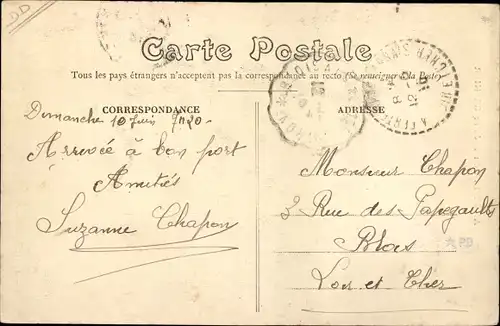 DD
Carte Postale
Tous les pays étrangers n'acceptent pas la correspondance au recto (Se renseigner à la Poste)
CORRESPONDANCE
ADRESSE
Dimanche 10 Juin 7h20
Arrivée à bon port
Amitiés
Suzanne Chapon
Monsieur Chapon
3 Rue des Papegaults
Blois
Loir et Cher